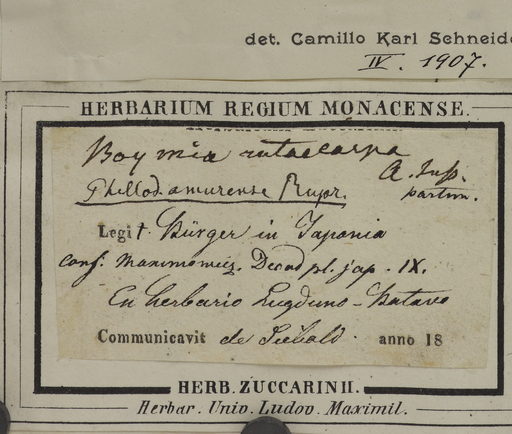 det. Camillo Karl Schneide
IV. 1907.
HERBARIUM REGIUM MONACENSE.
Boymia rutaecarpa
A. Juss.
partim.
Phellod. amurense Rupr.
Legit. Bürger in Japonia
conf. Maximowicz. Decad pl. jap. IX.
Ex herbario Lugduno-Batavo
Communicavit de Siebold. anno 18
HERB. ZUCCARINII.
Herbar. Univ. Ludov. Maximil.